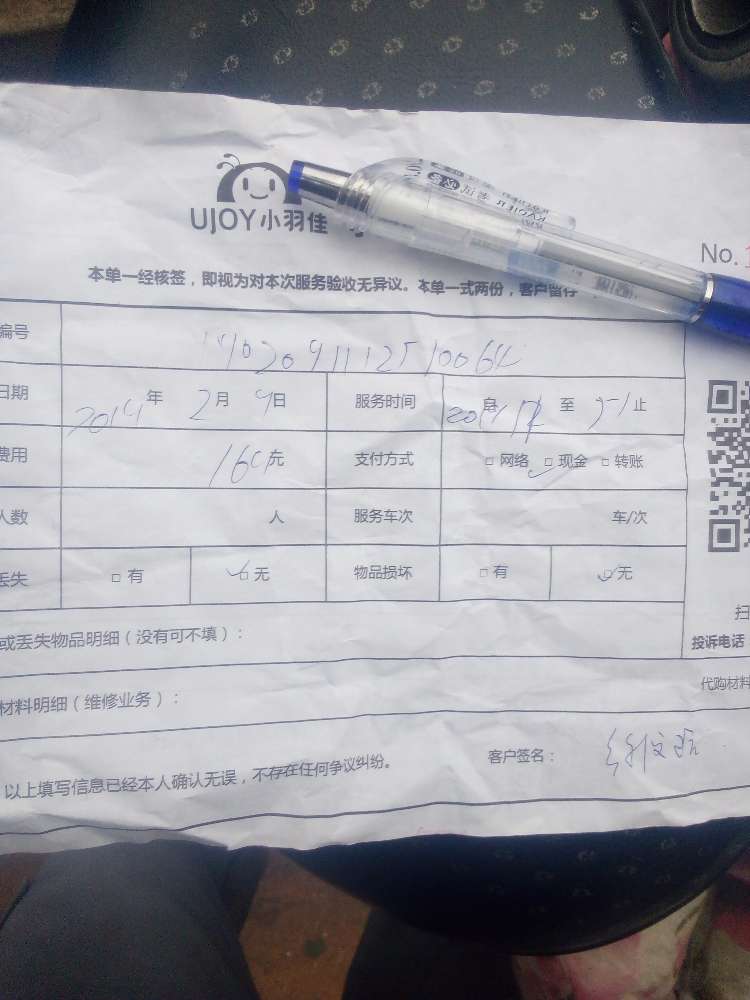 UJOY小羽佳
No.
本单一经核签，即视为对本次服务验收无异议。本单一式两份，客户留存
编号
日期 2014年 2月 9日 服务时间 至 止
费用 元 支付方式 □ 网络 □ 现金 □ 转账
人数 人 服务车次 车/次
丢失 □ 有 □ 无 物品损坏 □ 有 □ 无
或丢失物品明细（没有可不填）：
扫
投诉电话
材料明细（维修业务）：
代购材料
客户签名：
以上填写信息已经本人确认无误，不存在任何争议纠纷。